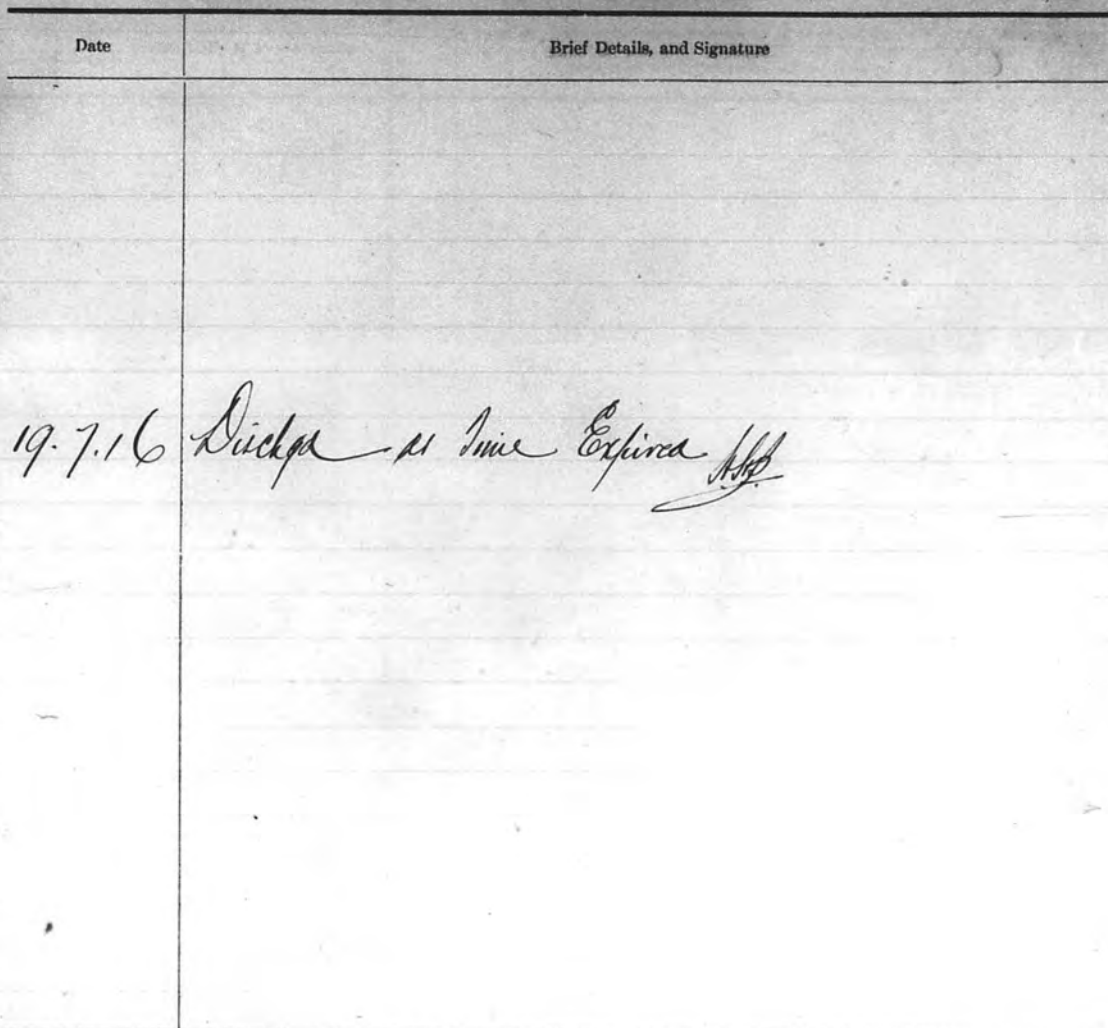 Date Brief Details, and Signature
19.7.16 Dischgd as Time Expired